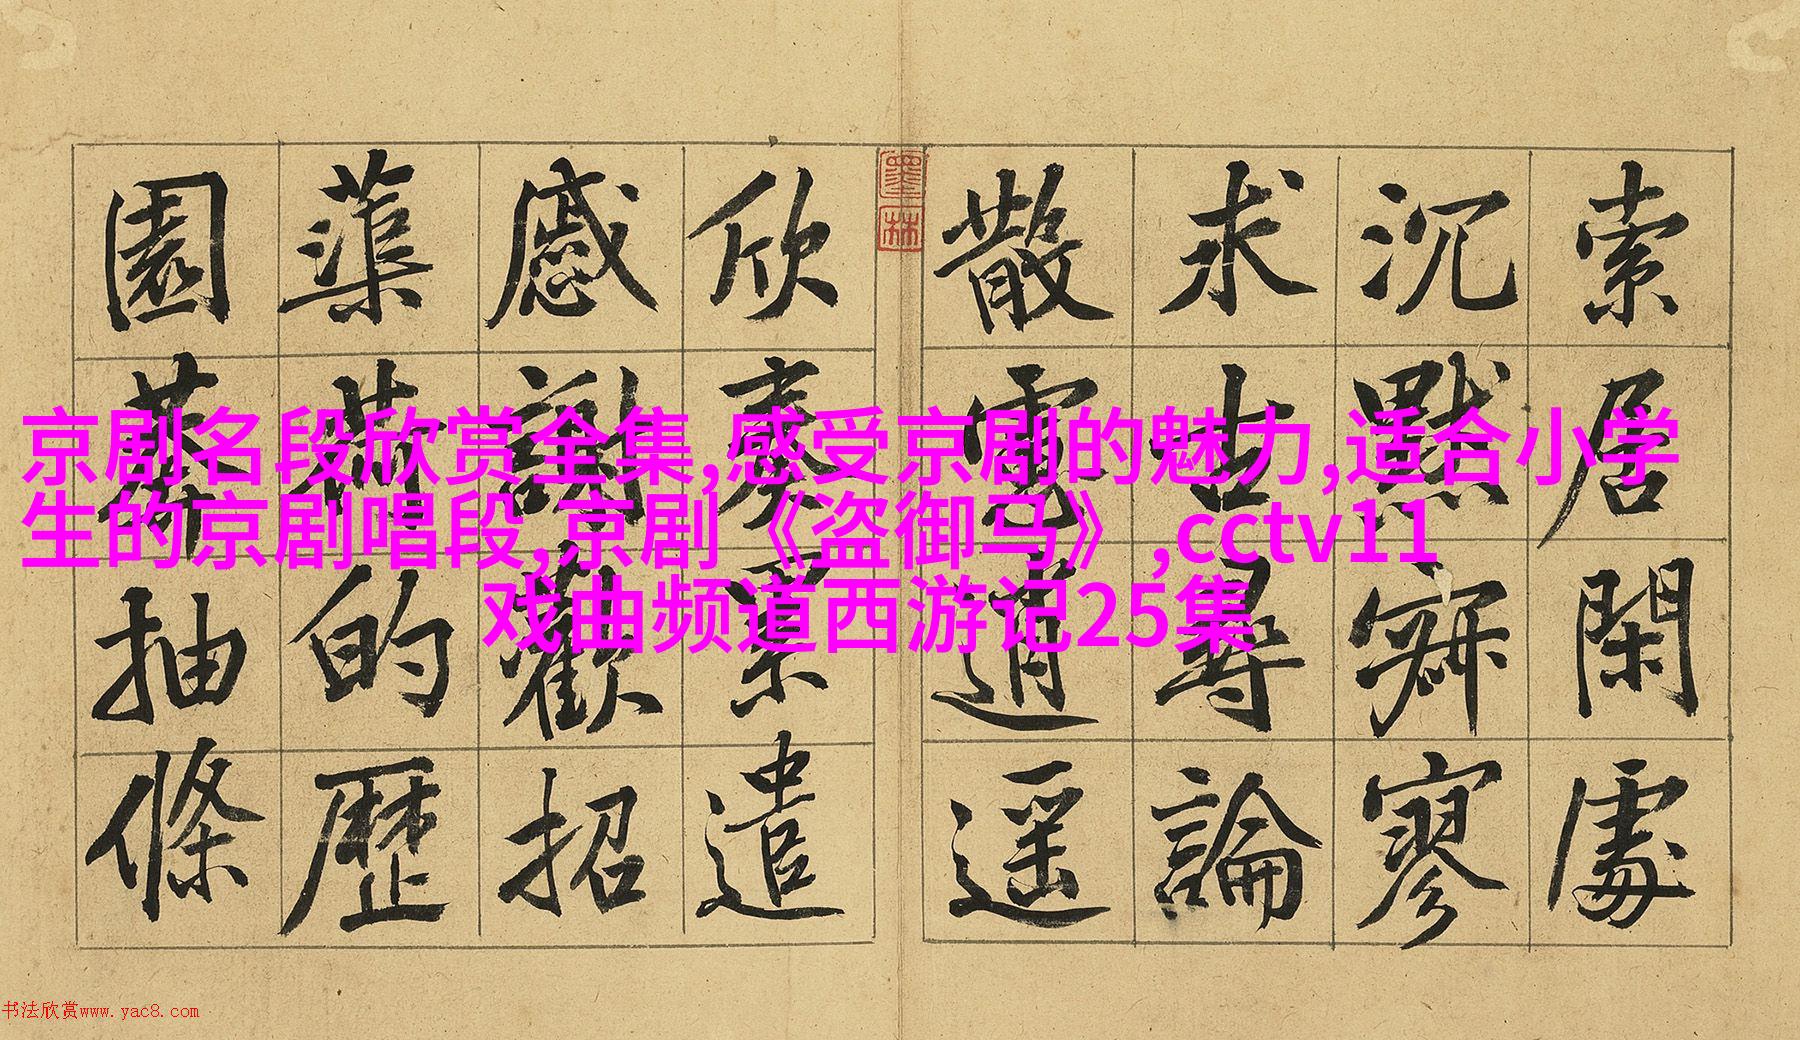 索居閑處
沉默寂寥
求古尋論
散慮逍遥
欣奏累遣
慼謝歡招
蕖荷的歷
園莽抽條
墨林
京剧名段欣赏全集,感受京剧的魅力,适合小学
生的京剧唱段,京剧《盗御马》,cctv11
戏曲频道西游记25集
书法欣赏www.yac8.com